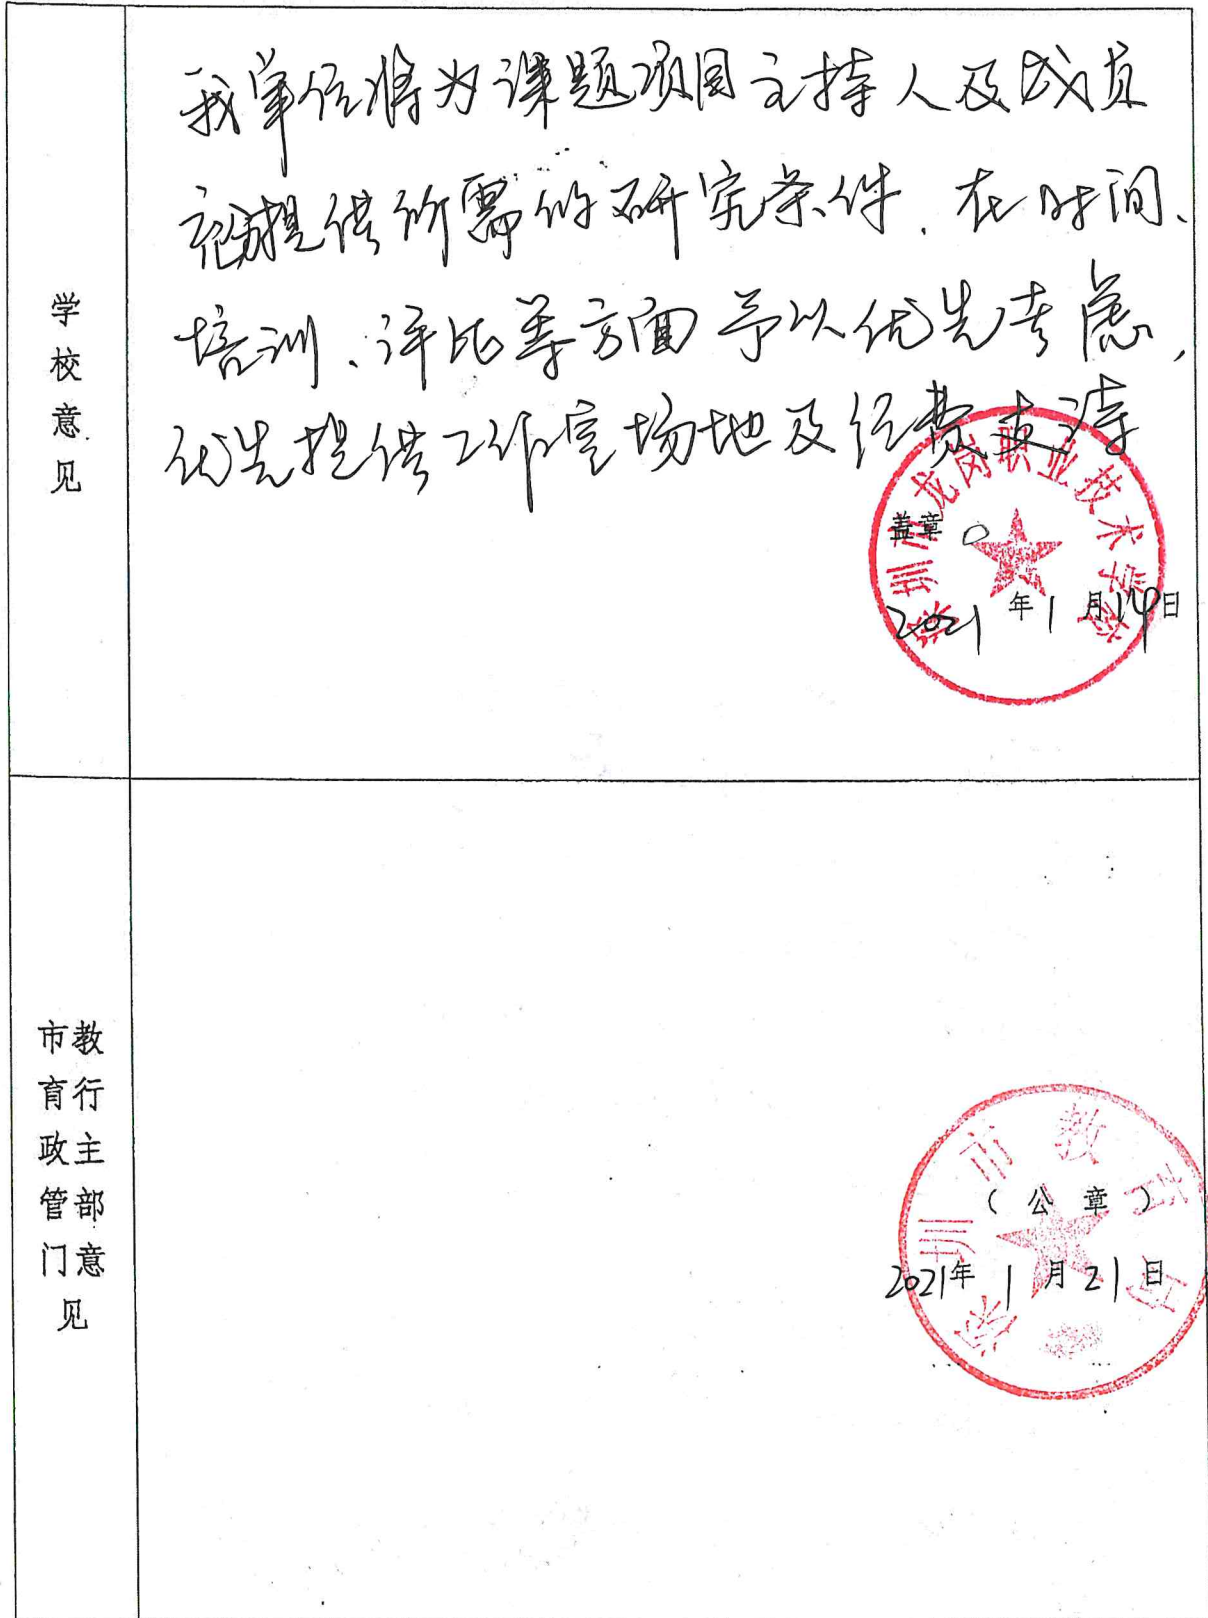 学校意见
我单位将为课题项目主持人及成员
充分提供所需的研究条件、在时间、
培训、评比等方面予以优先考虑,
优先提供工作室场地及经费支持
。
深圳市龙岗职业技术学校
盖章
2021年1月14日
市教育行政主管部门意见
深圳市教育局
(公章)
2021年1月21日